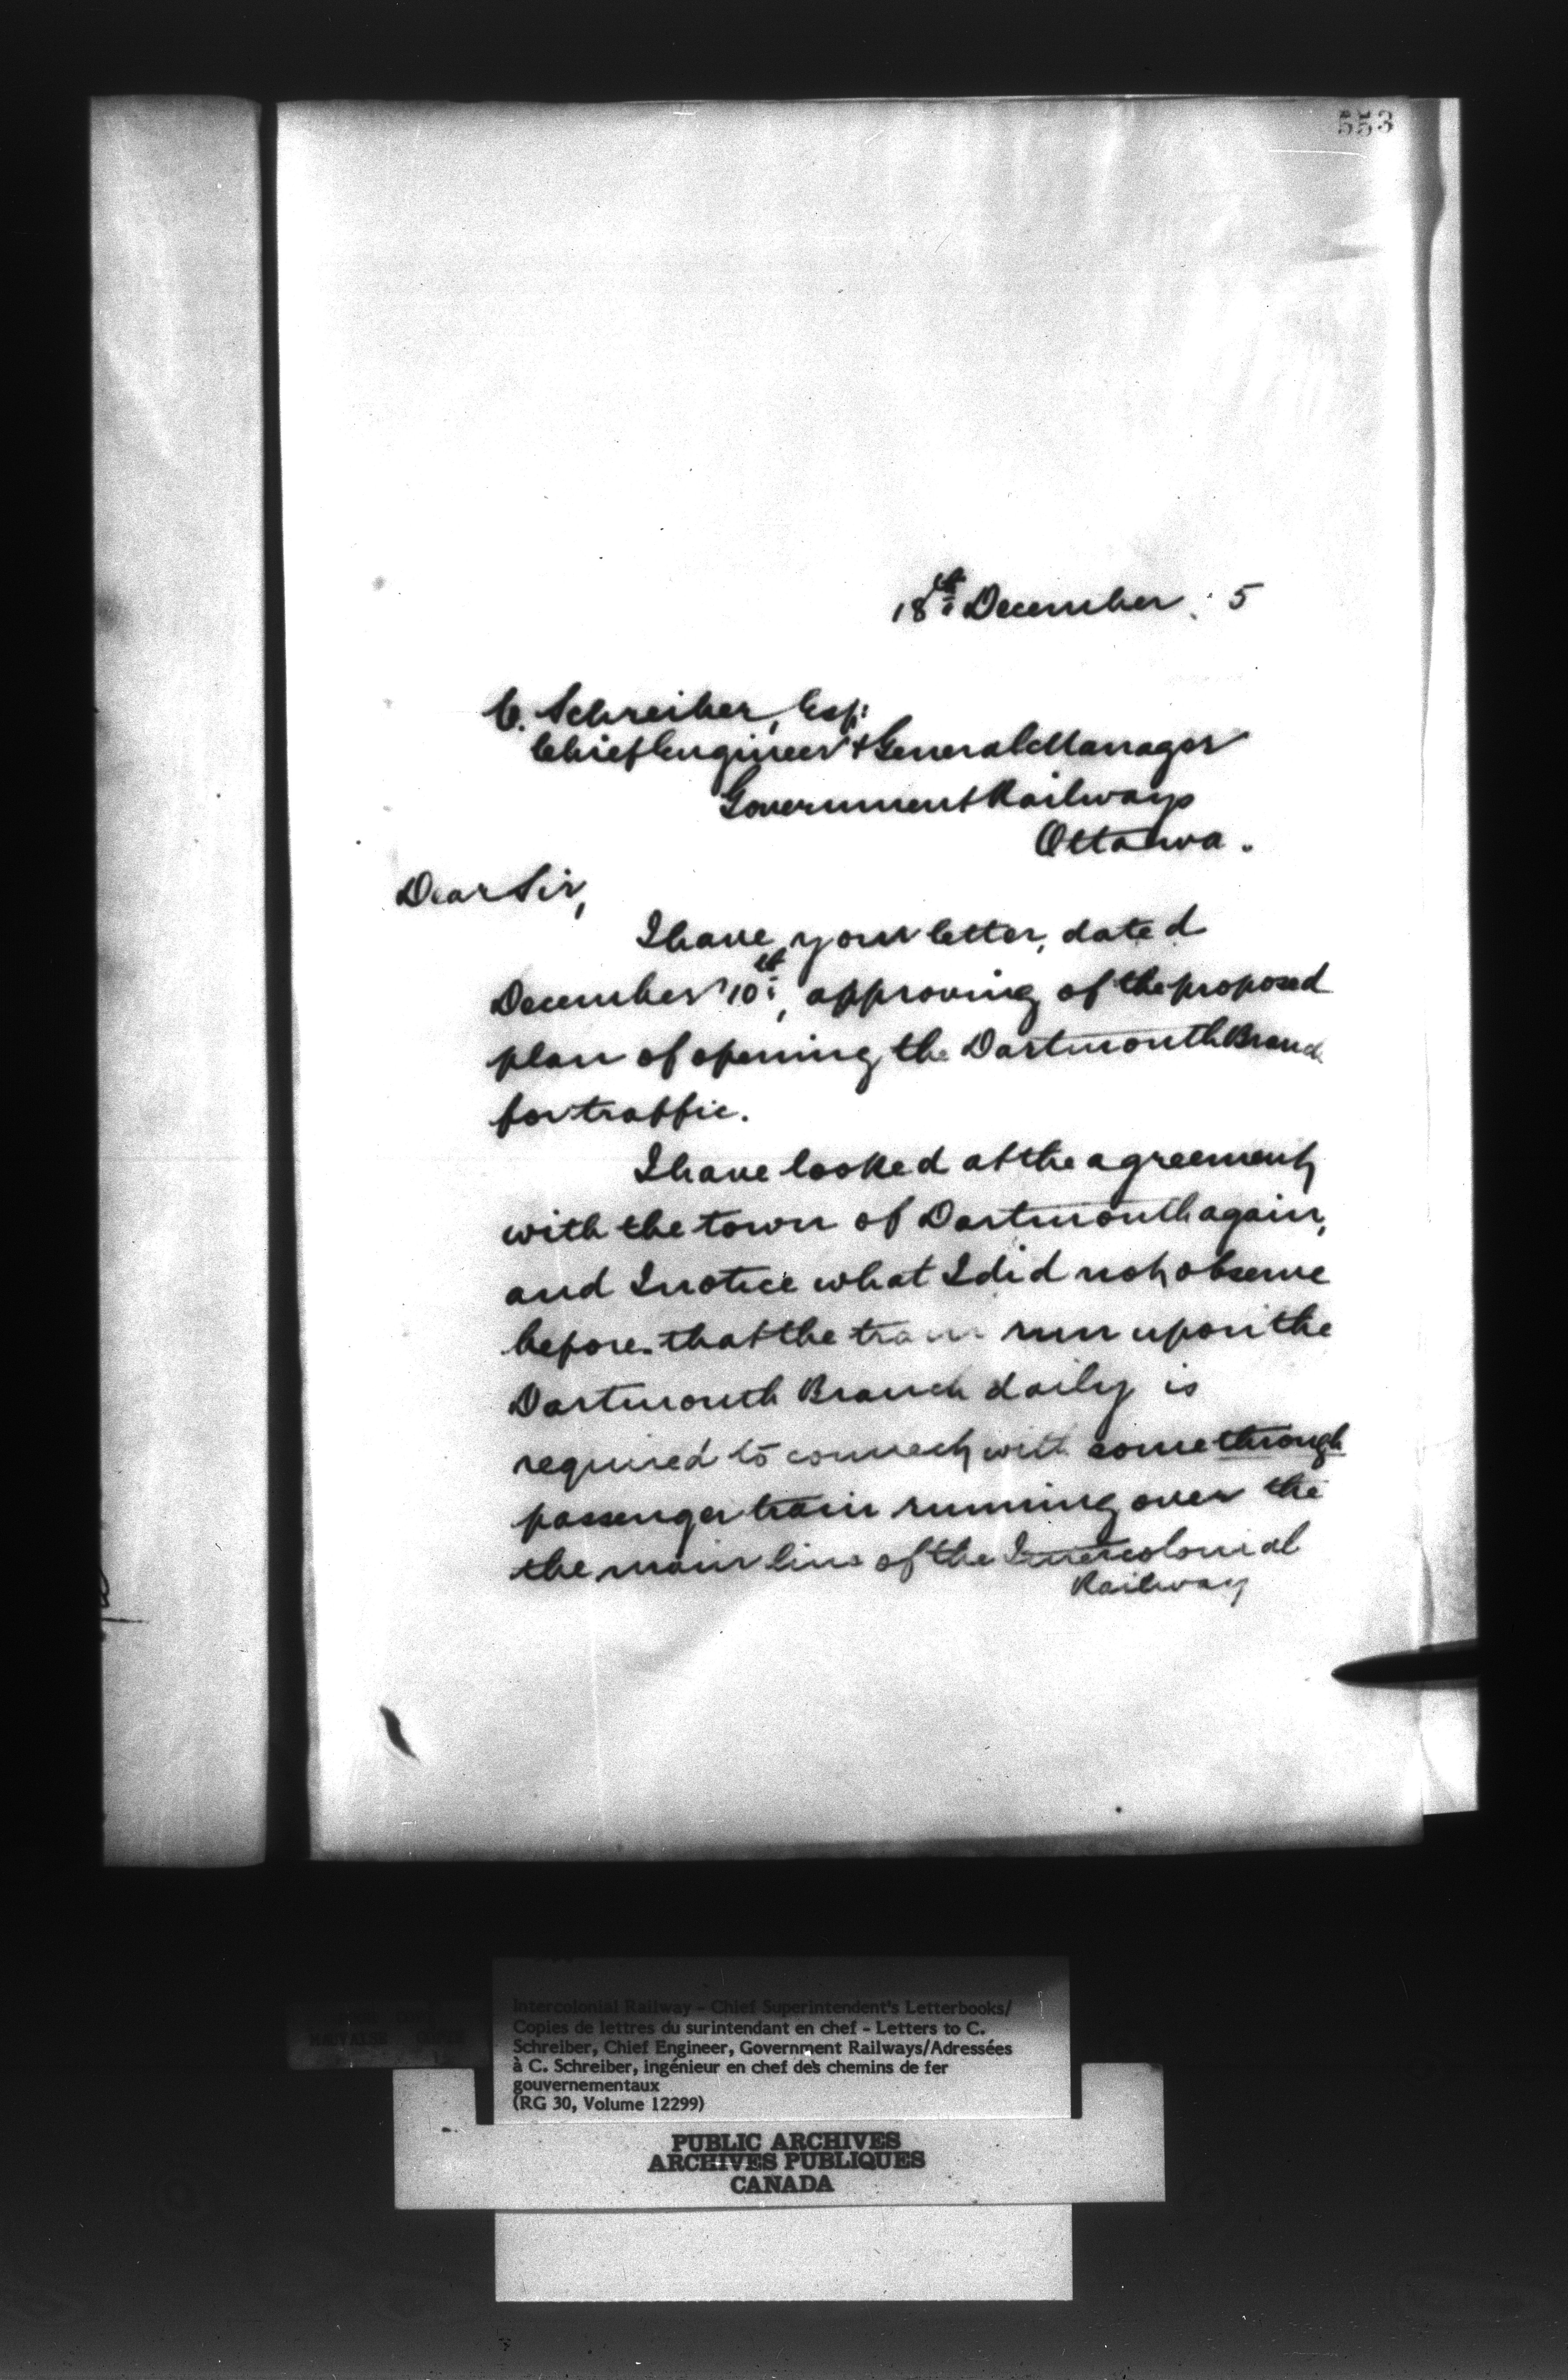 553
18th December. 5
C. Schreiber, Esq:
Chief Engineer & General Manager
Government Railways
Ottawa.
Dear Sir,
I have your letter, dated
December 10th, approving of the proposed
plan of opening the Dartmouth Branch
for traffic.
I have looked at the agreement
with the town of Dartmouth again,
and I notice what I did not observe
before that the train run upon the
Dartmouth Branch daily is
required to connect with some through
passenger train running over the
the main line of the Intercolonial
Railway
Intercolonial Railway - Chief Superintendent's Letterbooks/
Copies de lettres du surintendant en chef - Letters to C.
Schreiber, Chief Engineer, Government Railways/Adressées
à C. Schreiber, ingénieur en chef des chemins de fer
gouvernementaux
(RG 30, Volume 12299)
PUBLIC ARCHIVES
ARCHIVES PUBLIQUES
CANADA